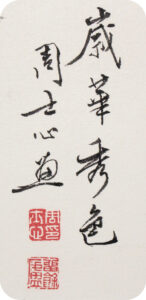 歲華秀色
周士心畫